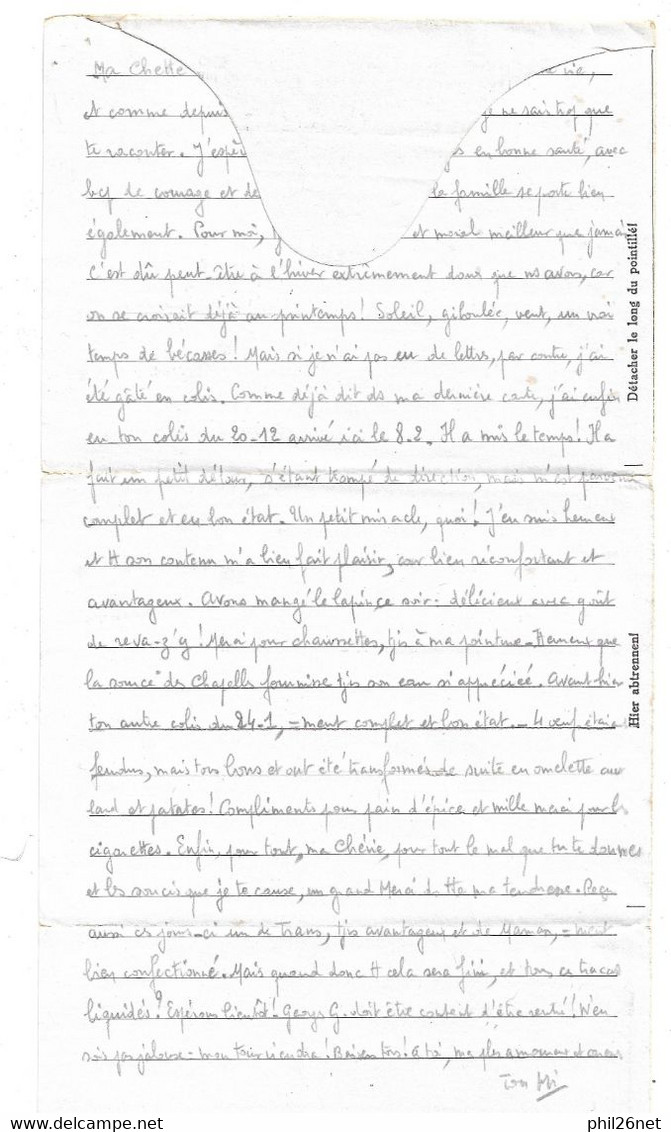 Ma Chette vie,
et comme depuis je ne sais trop que
te raconter. J'espèr en bonne santé, avec
bcp de courage et de la famille se porte bien
également. Pour moi, et moral meilleur que jamais
C'est dû peut-être à l'hiver extrêmement doux que ns avons, car
on se croirait déjà au printemps! Soleil, giboulée, vent, un vrai
temps de bécasses! Mais si je n'ai pas eu de lettres, par contre, j'ai
été gâté en colis. Comme déjà dit ds ma dernière carte, j'ai enfin
eu ton colis du 20-12 arrivé ici le 8-2. Il a mis le temps! Il a
fait un petit détour, s'étant trompé de direction, mais m'est parvenu
complet et en bon état. Un petit miracle, quoi! J'en suis heureux
et tt son contenu m'a bien fait plaisir, car bien réconfortant et
avantageux. Avons mangé le lapin ce soir - délicieux avec goût
de reva-z'y! Merci pour chaussettes, tjs à ma pointure - Heureux que
la source des Chapelles fournisse tjs son eau si appréciée. Avant-hier
ton autre colis du 24-1, =ment complet et bon état. - 4 oeufs étaient
fendus, mais tous bons et ont été transformés de suite en omelette au
lard et patates! Compliments pour pain d'épice et mille merci pour les
cigarettes. Enfin, pour tout, ma Chérie, pour tout le mal que tu te donnes
et les soucis que je te cause, un grand Merci de tte ma tendresse. Reçu
aussi ces jours-ci un de Trans, tjs avantageux et de Maman, =ment
bien confectionné. Mais quand donc tt cela sera fini, et tous ces tracas
liquidés? Espérons bientôt! Georges G. doit être content d'être rentré! N'en
sois pas jalouse - mon tour viendra! Baisers tous! à toi, ma plus amoureux et
Ton Mi
Détacher le long du pointillé!
Hier abtrennen!
phil26net